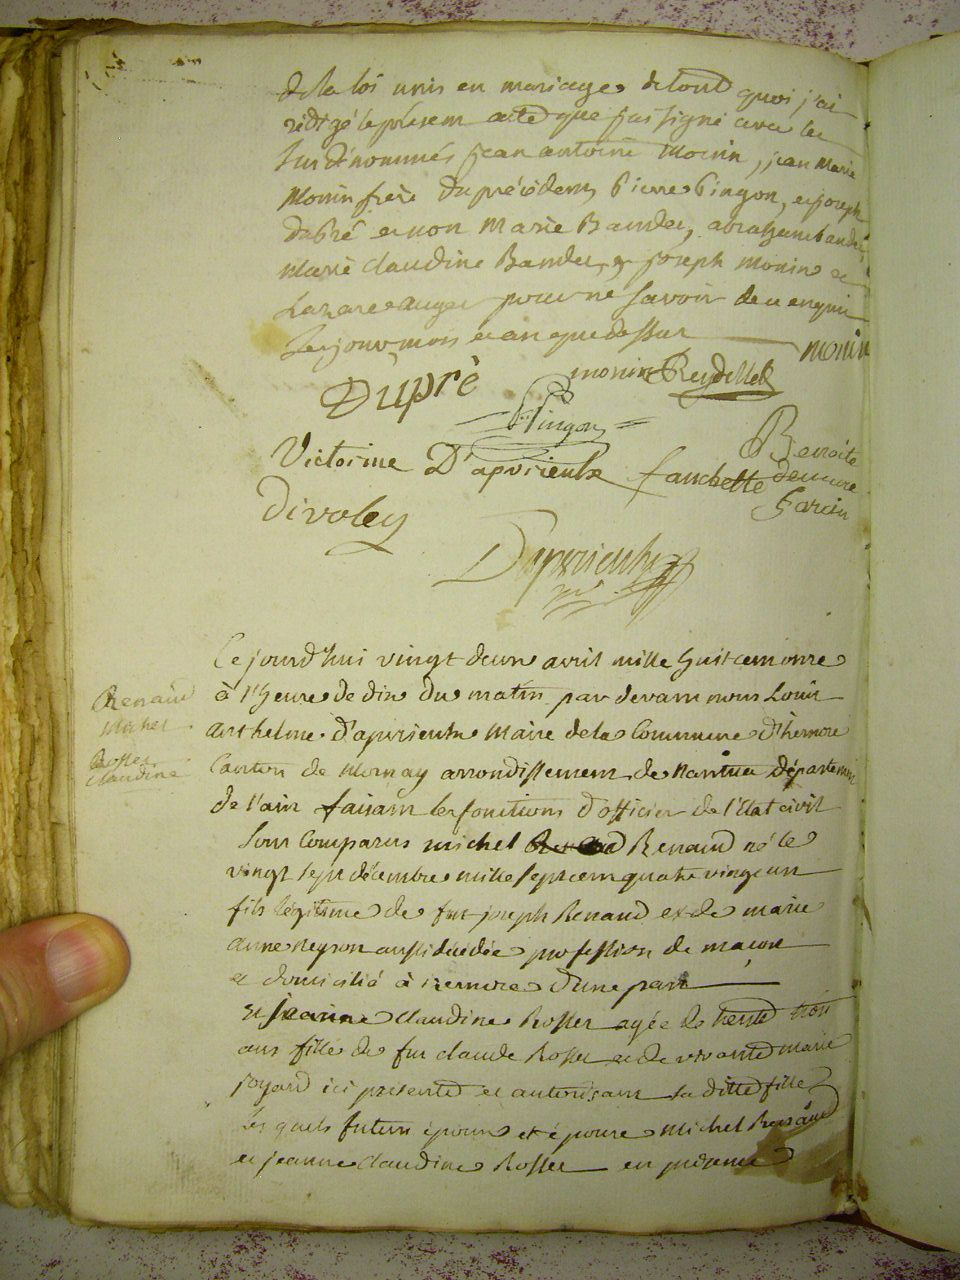 de la loi unis en mariage de tout quoi j'ai
rédigé le présem acte que j'ai signé avec les
susdénommés jean antoine Monin, jean Marie
Monin frère du précédem, Pierre Pingon, et joseph
Dupré et non Marie Bander, abraham bander,
Marie claudine Bander, et joseph Monin et
Lazare auger pour ne savoir de ce enquis
les jour mois et an que dessus
monin
monin Reydellet
Dupré
Pingon
Benoite
Victorine D'apvrieulx fanchette
Garcin
Divoley
Dapvrieulx
Ce jourd'hui vingt deux avril mille huit cem onze
à l'heure de dix du matin par devam nous Louis
anthelme D'apvrieulx Maire de la Commune D'hernore
Canton de Mornay arrondissemem de Nantua départem
de l'ain faisam les fonctions d'officier de l'Etat civil
Renaud
Michel
Rosset
claudine
Som Comparus michel Renaud né le
vingt sept décembre mille sept cem quatre vingt un
fils légitime de fut joseph Renaud et de marie
anne neyron aussi décédée profession de maçon
et domicilié à izernore d'une part
Et jeanne claudine Rosset agée de trente trois
ans fille de fut claude Rosset et de vivante marie
joyard ici présente et autorisam sa ditte fille
les quels futurs époux et épouse Michel Renaud
et jeanne claudine Rosset en présence